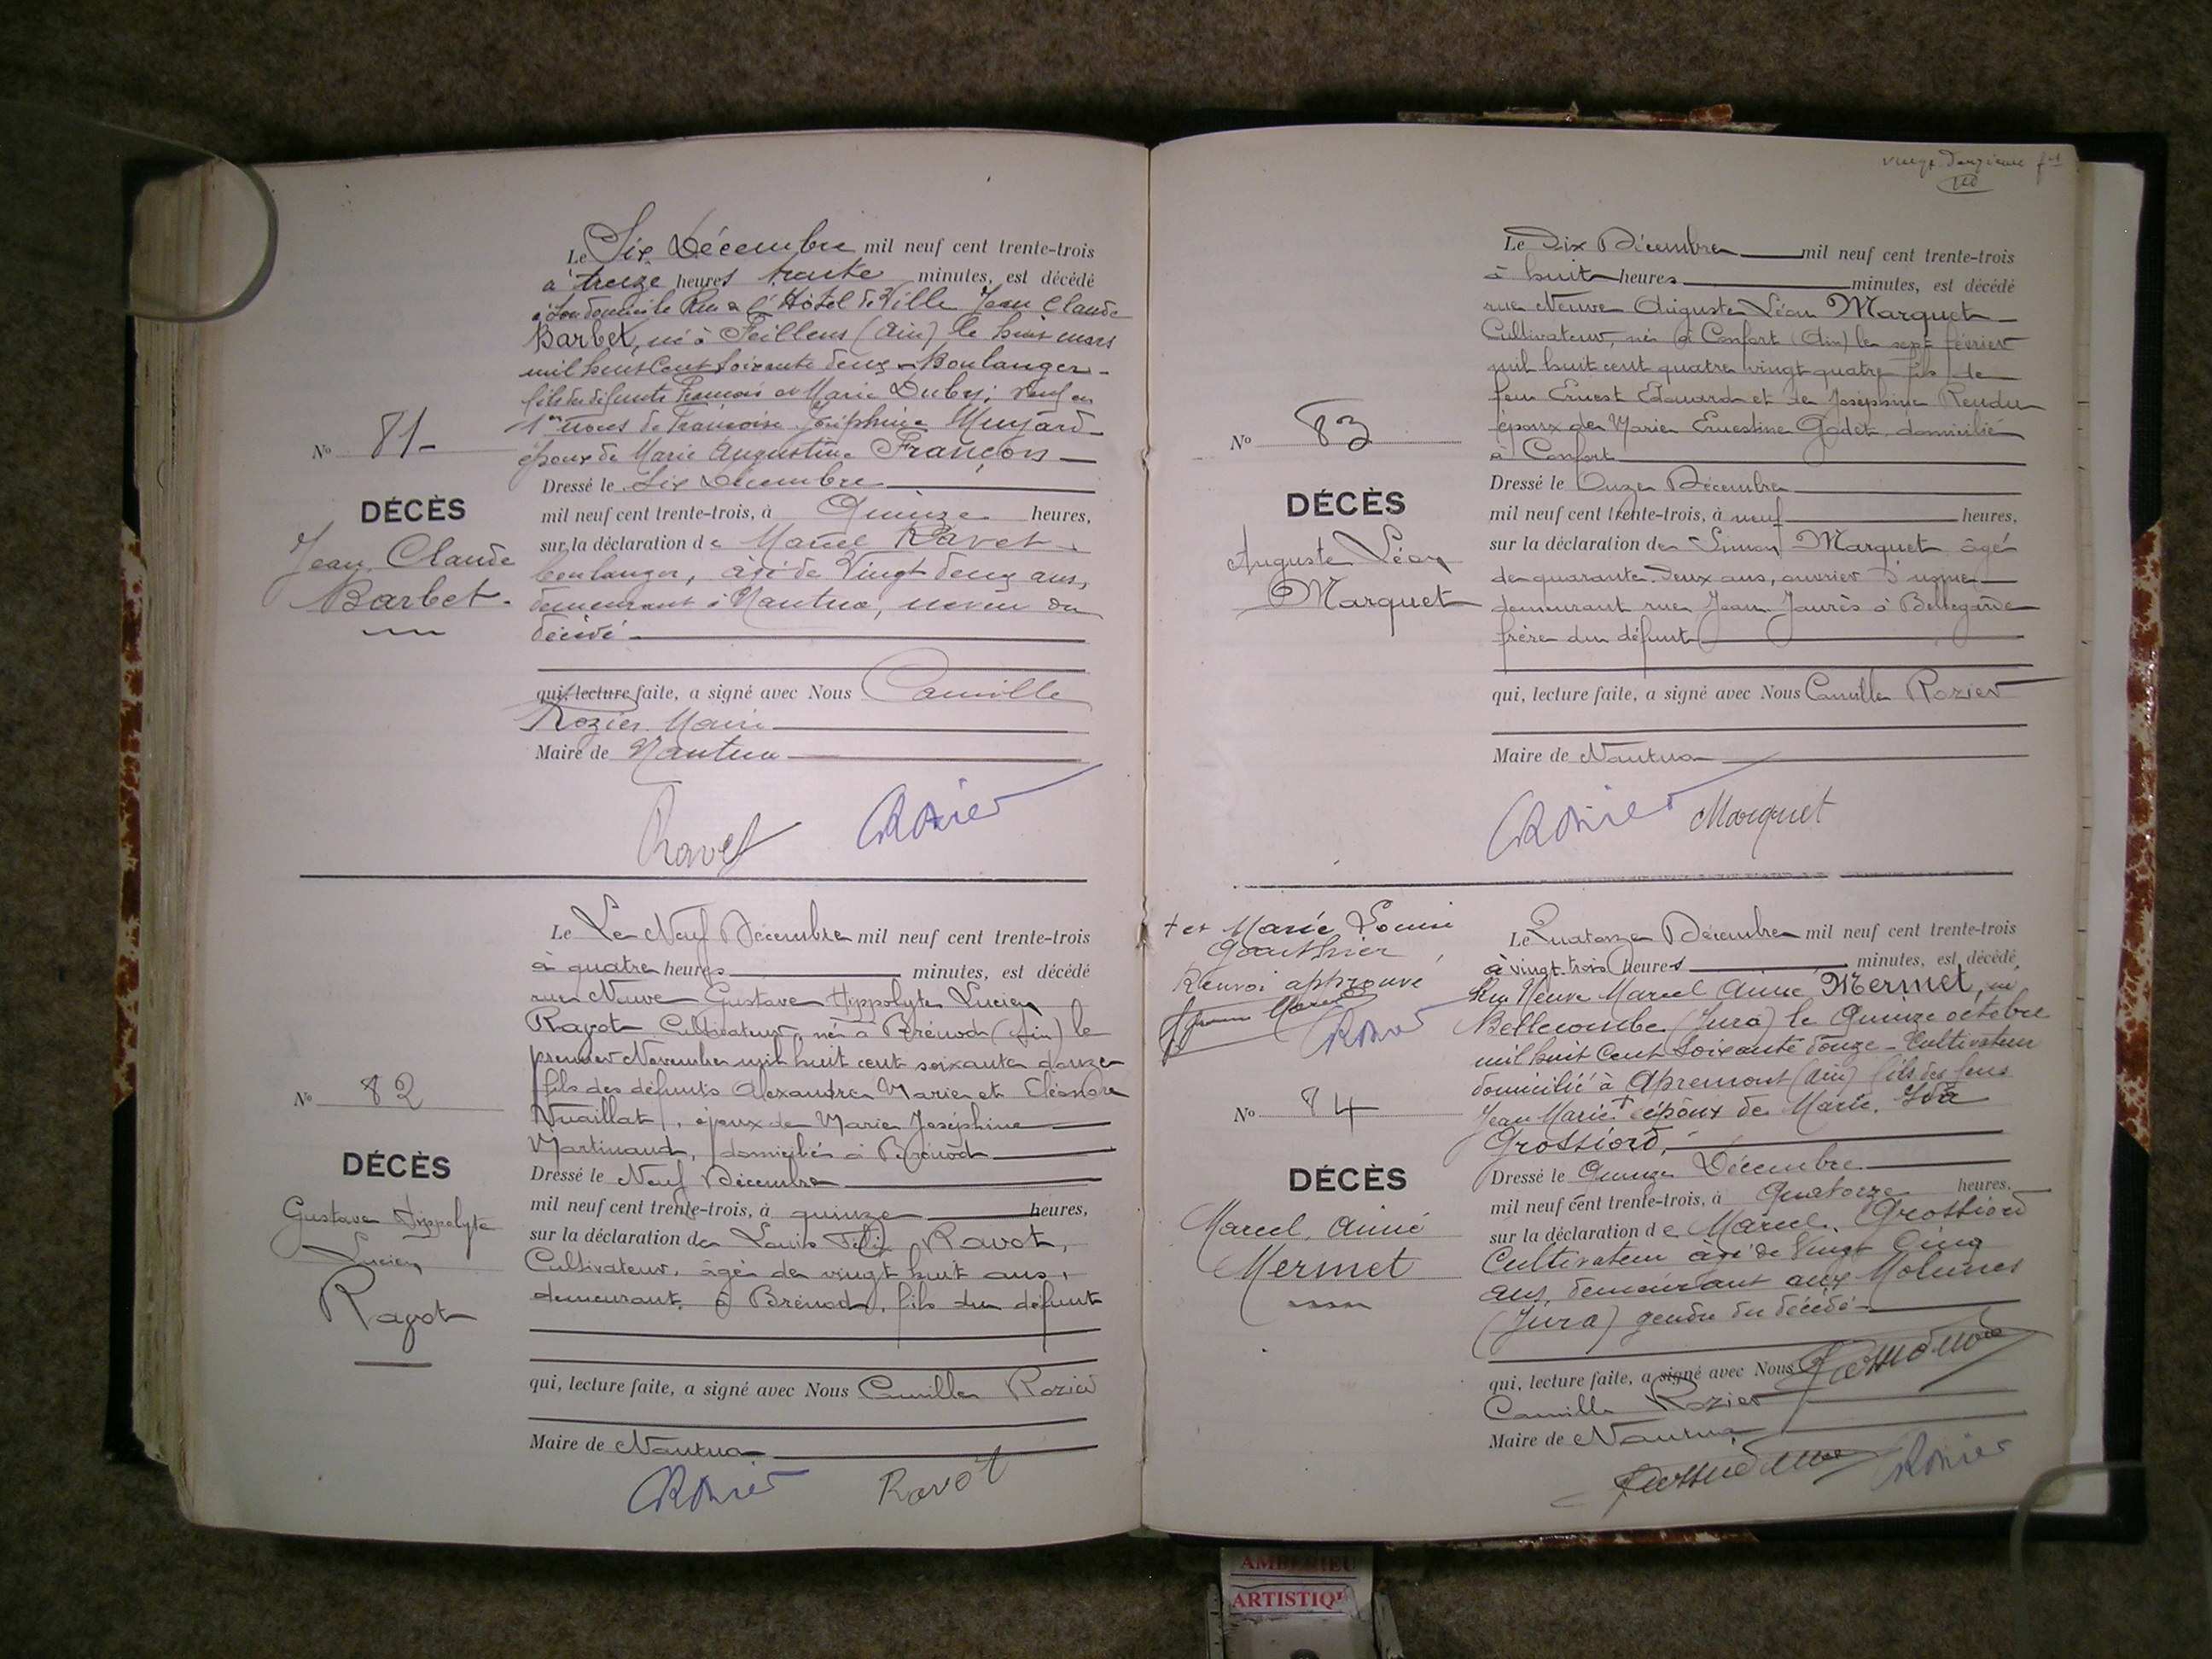 Le Six Décembre mil neuf cent trente-trois
à treize heures trente minutes, est décédé
à son domicile Rue de l'Hôtel de Ville Jean Claude
Barbet, né à Feillens (Ain) le huit mars
mil huit cent soixante deux - Boulanger -
fils des défunts François et Marie Dubry; veuf en
1ères noces de Françoise Joséphine Munjard
époux de Marie Augustine François
Dressé le Six Décembre
mil neuf cent trente-trois, à Quinze heures,
sur la déclaration de Marcel Ravet
boulanger, âgé de Vingt deux ans,
demeurant à Nantua, neveu du
décédé
qui, lecture faite, a signé avec Nous Camille
Rozier Maire
Maire de Nantua
Ravet CRozier
No 81
DÉCÈS
Jean Claude
Barbet
Le Le Neuf Décembre mil neuf cent trente-trois
à quatre heures minutes, est décédé
rue Neuve Gustave Hippolyte Lucien
Ravot Cultivateur, né à Brénod (Ain) le
premier Novembre mil huit cent soixante douze
fils des défunts Alexandre Marie et Eléonore
Nuaillat, époux de Marie Joséphine
Martinand, domicilié à Brénod
Dressé le Neuf Décembre
mil neuf cent trente-trois, à quinze heures,
sur la déclaration de Louis Félix Ravot,
Cultivateur, âgé de vingt huit ans,
demeurant à Brénod, fils du défunt
qui, lecture faite, a signé avec Nous Camille Rozier
Maire de Nantua
CRozier Ravot
No 82
DÉCÈS
Gustave Hippolyte
Lucien
Ravot
vingt deuxième ft
Le Dix Décembre mil neuf cent trente-trois
à huit heures minutes, est décédé
rue Neuve Auguste Léon Marquet
Cultivateur, né à Confort (Ain) le sept février
mil huit cent quatre vingt quatre fils de
feu Ernest Edouard et de Joséphine Rendu
époux de Marie Ernestine Godet domicilié
à Confort
Dressé le Onze Décembre
mil neuf cent trente-trois, à neuf heures,
sur la déclaration de Simon Marquet âgé
de quarante deux ans, ouvrier d'usine
demeurant rue Jean Jaurès à Bellegarde
frère du défunt
qui, lecture faite, a signé avec Nous Camille Rozier
Maire de Nantua
CRozier Marquet
No 83
DÉCÈS
Auguste Léon
Marquet
+ et Marie Louise
Gauthier
Renvoi approuvé
CRozier
Le Quatorze Décembre mil neuf cent trente-trois
à vingt trois heures minutes, est décédé
Rue Neuve Marcel Aimé Mermet, né
Bellecombe (Jura) le Quinze octobre
mil huit cent soixante douze - Cultivateur
domicilié à Apremont (Ain) fils des feus
Jean Marie + époux de Marie Ida
Grossiord,
Dressé le Quinze Décembre
mil neuf cent trente-trois, à Quatorze heures,
sur la déclaration de Marcel Grossiord
Cultivateur âgé de Vingt Cinq
ans, demeurant aux Molunes
(Jura) gendre du décédé
qui, lecture faite, a signé avec Nous
Camille Rozier
Maire de Nantua
CRozier
No 84
DÉCÈS
Marcel Aimé
Mermet
AMBERIEU
ARTISTIQU